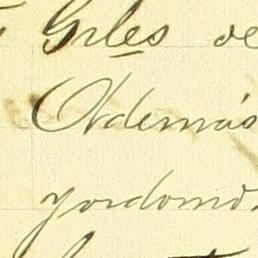 Giles de
Además
yordomo.